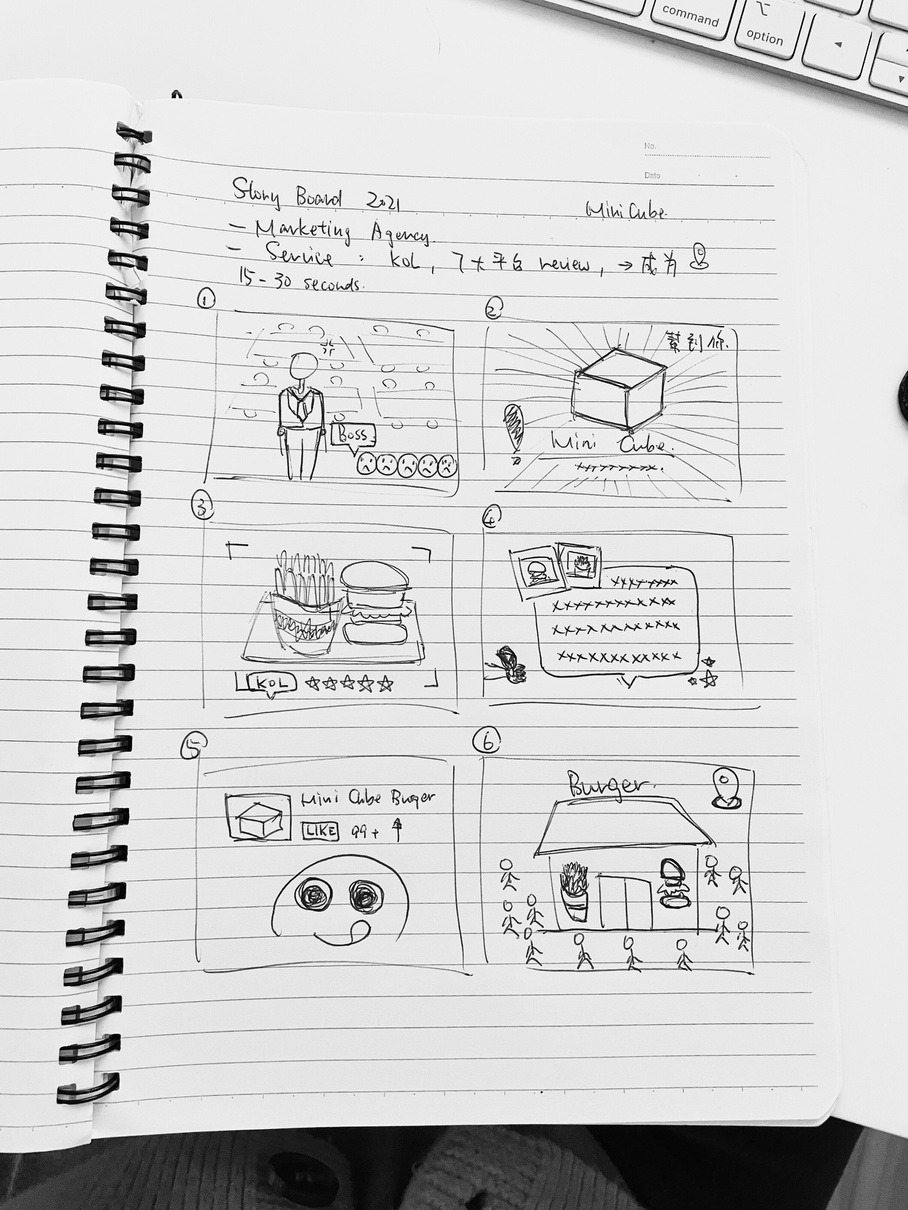 command
option
No.
Date
Story Board 2021
Mini Cube
- Marketing Agency.
- Service : KOL, 7大平台 review, → 成為
15-30 seconds.
①
②
Boss
幫到你.
Mini Cube.
xxxxxxxx.
③
④
KOL
xxxxxxxx
xxxxxxxxxxxx
xxxxxxxxxxxx
xxxxxxxxxxxx
⑤
⑥
Mini Cube Burger
LIKE 99+ ↑
Burger.